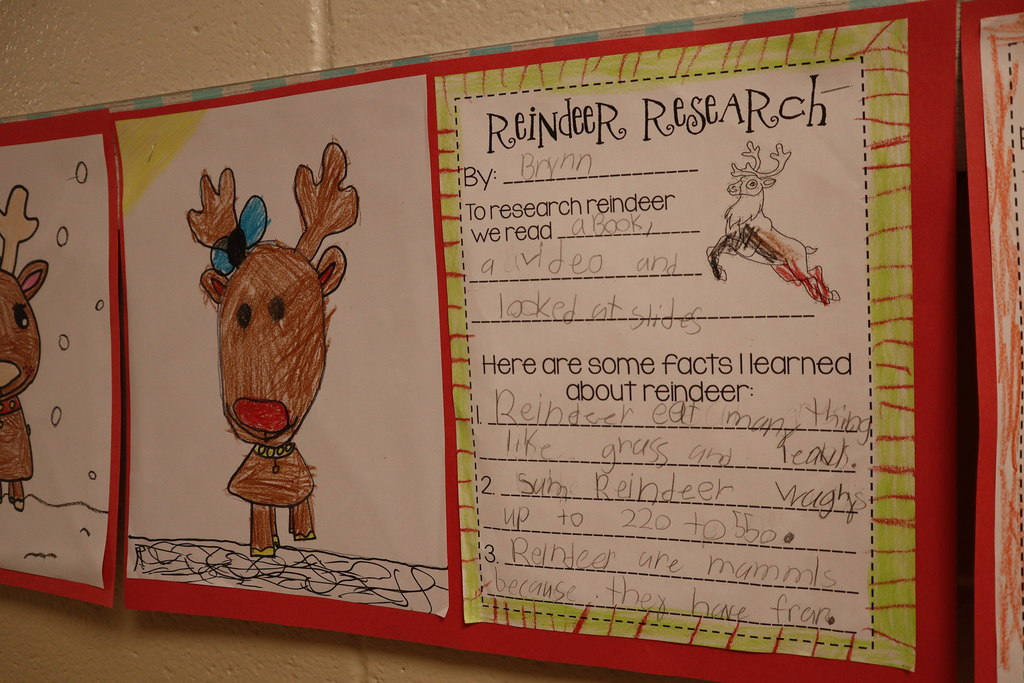 Reindeer Research
By: Brynn
To research reindeer
we read a Book,
a video and
looked at slides
Here are some facts I learned
about reindeer:
1. Reindeer eat many thing
like grass and
2. Sum Reindeer waghs
up to 220 to 550.
3. Reindeer are mammls
because they have frar.